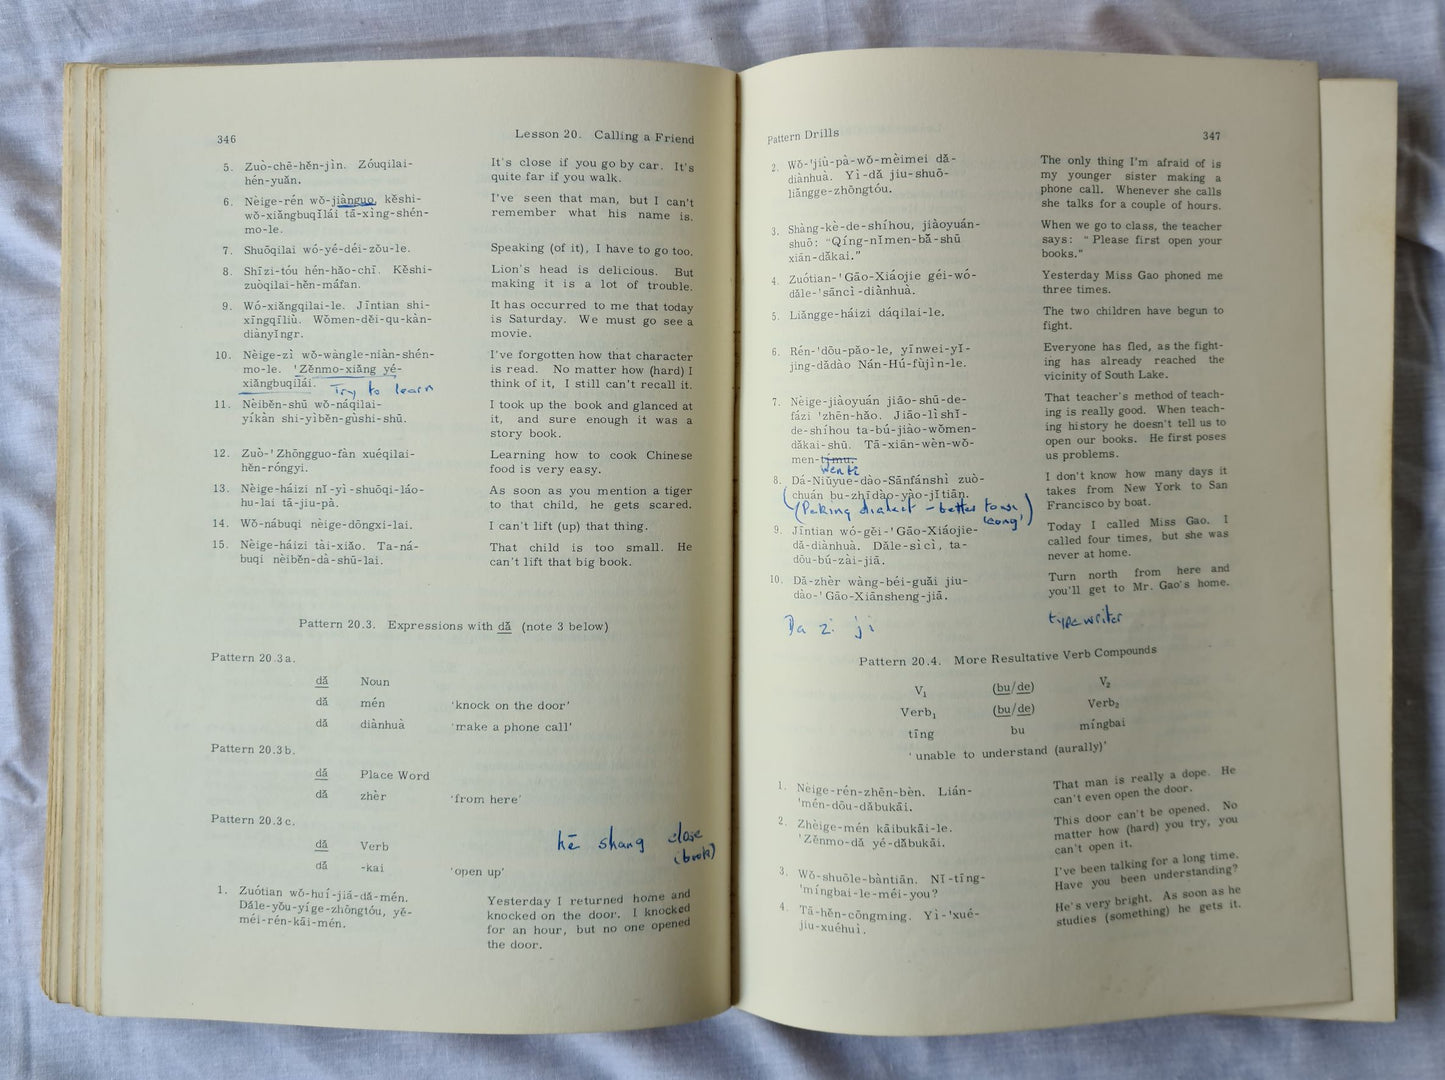 346
Lesson 20. Calling a Friend
5. Zuò-chē-hěn-jìn. Zóuqilai-
hén-yuǎn.
It's close if you go by car. It's
quite far if you walk.
6. Nèige-rén wǒ-jiànguo, kěshi-
wǒ-xiǎngbuqǐlái tā-xìng-shén-
mo-le.
I've seen that man, but I can't
remember what his name is.
7. Shuōqilai wó-yé-déi-zǒu-le.
Speaking (of it), I have to go too.
8. Shīzi-tóu hén-hǎo-chī. Kěshi-
zuòqilai-hěn-máfan.
Lion's head is delicious. But
making it is a lot of trouble.
9. Wó-xiǎngqilai-le. Jīntian shi-
xīngqīliù. Wǒmen-děi-qu-kàn-
diànyǐngr.
It has occurred to me that today
is Saturday. We must go see a
movie.
10. Nèige-zì wǒ-wàngle-niàn-shén-
mo-le. 'Zěnmo-xiǎng yé-
xiǎngbuqilái. Try to learn
I've forgotten how that character
is read. No matter how (hard) I
think of it, I still can't recall it.
11. Nèiběn-shū wǒ-náqilai-
yíkàn shi-yìběn-gùshi-shū.
I took up the book and glanced at
it, and sure enough it was a
story book.
12. Zuò-'Zhōngguo-fàn xuéqilai-
hěn-róngyi.
Learning how to cook Chinese
food is very easy.
13. Nèige-háizi nǐ-yi-shuōqi-láo-
hu-lai tā-jiu-pà.
As soon as you mention a tiger
to that child, he gets scared.
14. Wǒ-nábuqi nèige-dōngxi-lai.
I can't lift (up) that thing.
15. Nèige-háizi tài-xiǎo. Ta-ná-
buqi nèiběn-dà-shū-lai.
That child is too small. He
can't lift that big book.
Pattern 20.3. Expressions with dǎ (note 3 below)
Pattern 20.3a.
dǎ Noun
dǎ mén 'knock on the door'
dǎ diànhuà 'make a phone call'
Pattern 20.3b.
dǎ Place Word
dǎ zhèr 'from here'
Pattern 20.3c.
dǎ Verb
dǎ -kai 'open up'
hē shang close
(book)
1. Zuótian wǒ-huí-jiā-dǎ-mén.
Dǎle-yǒu-yíge-zhōngtóu, yě-
méi-rén-kāi-mén.
Yesterday I returned home and
knocked on the door. I knocked
for an hour, but no one opened
the door.
Pattern Drills
347
2. Wǒ-'jiù-pà-wǒ-mèimei dǎ-
diànhuà. Yì-dǎ jiu-shuō-
liǎngge-zhōngtóu.
The only thing I'm afraid of is
my younger sister making a
phone call. Whenever she calls
she talks for a couple of hours.
3. Shàng-kè-de-shíhou, jiàoyuán-
shuō: "Qíng-nǐmen-bǎ-shū
xiān-dǎkai."
When we go to class, the teacher
says: "Please first open your
books."
4. Zuótian-'Gāo-Xiáojie géi-wó-
dǎle-'sāncì-diànhuà.
Yesterday Miss Gao phoned me
three times.
5. Liǎngge-háizi dáqilai-le.
The two children have begun to
fight.
6. Rén-'dōu-pǎo-le, yīnwei-yǐ-
jing-dǎdào Nán-Hú-fùjìn-le.
Everyone has fled, as the fight-
ing has already reached the
vicinity of South Lake.
7. Nèige-jiàoyuán jiāo-shū-de-
fázi 'zhēn-hǎo. Jiāo-lìshǐ-
de-shíhou ta-bú-jiào-wǒmen-
dǎkai-shū. Tā-xiān-wèn-wǒ-
men-tímu.
wenti
That teacher's method of teach-
ing is really good. When teach-
ing history he doesn't tell us to
open our books. He first poses
us problems.
8. Dá-Niǔyue-dào-Sānfánshì zuò-
chuán bu-zhīdào-yào-jǐtiān.
(Peking dialect - better to use
'cong')
I don't know how many days it
takes from New York to San
Francisco by boat.
9. Jīntian wó-gěi-'Gāo-Xiáojie-
dǎ-diànhuà. Dǎle-sìcì, ta-
dōu-bú-zài-jiā.
Today I called Miss Gao. I
called four times, but she was
never at home.
10. Dǎ-zhèr wàng-béi-guǎi jiu-
dào-'Gāo-Xiānsheng-jiā.
Turn north from here and
you'll get to Mr. Gao's home.
Da zi ji typewriter
Pattern 20.4. More Resultative Verb Compounds
V1 (bu/de) V2
Verb1 (bu/de) Verb2
tīng bu míngbai
'unable to understand (aurally)'
1. Nèige-rén-zhēn-bèn. Lián-
'mén-dōu-dǎbukāi.
That man is really a dope. He
can't even open the door.
2. Zhèige-mén kāibukāi-le.
'Zěnmo-dǎ yé-dǎbukāi.
This door can't be opened. No
matter how (hard) you try, you
can't open it.
3. Wǒ-shuōle-bàntiān. Nǐ-tīng-
'míngbai-le-méi-you?
I've been talking for a long time.
Have you been understanding?
4. Tā-hěn-cōngming. Yì-'xué-
jiu-xuéhuì.
He's very bright. As soon as he
studies (something) he gets it.